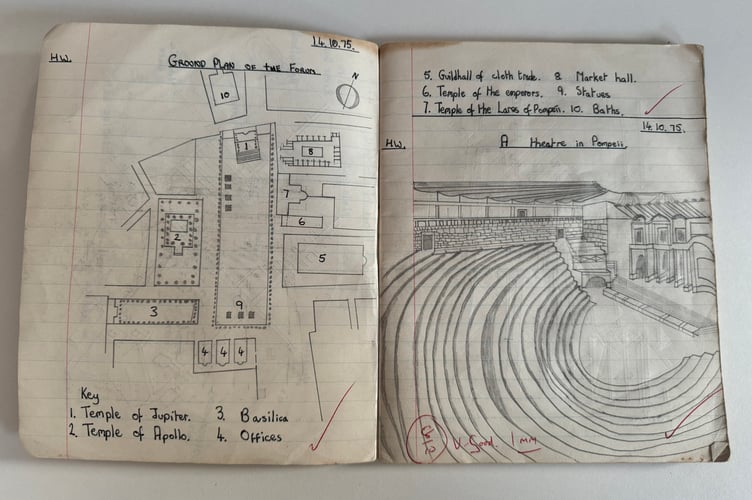 14.10.75.
H.W.
GROUND PLAN OF THE FORUM
N
10
1
8
7
2
6
5
3
9
4 4 4
Key
1. Temple of Jupiter. 3. Basilica
2. Temple of Apollo. 4. Offices
5. Guildhall of cloth trade. 8. Market hall.
6. Temple of the emperors. 9. Statues
7. Temple of the Lares of Pompeii. 10. Baths.
14.10.75.
H.W.
A theatre in Pompeii.
V. Good.